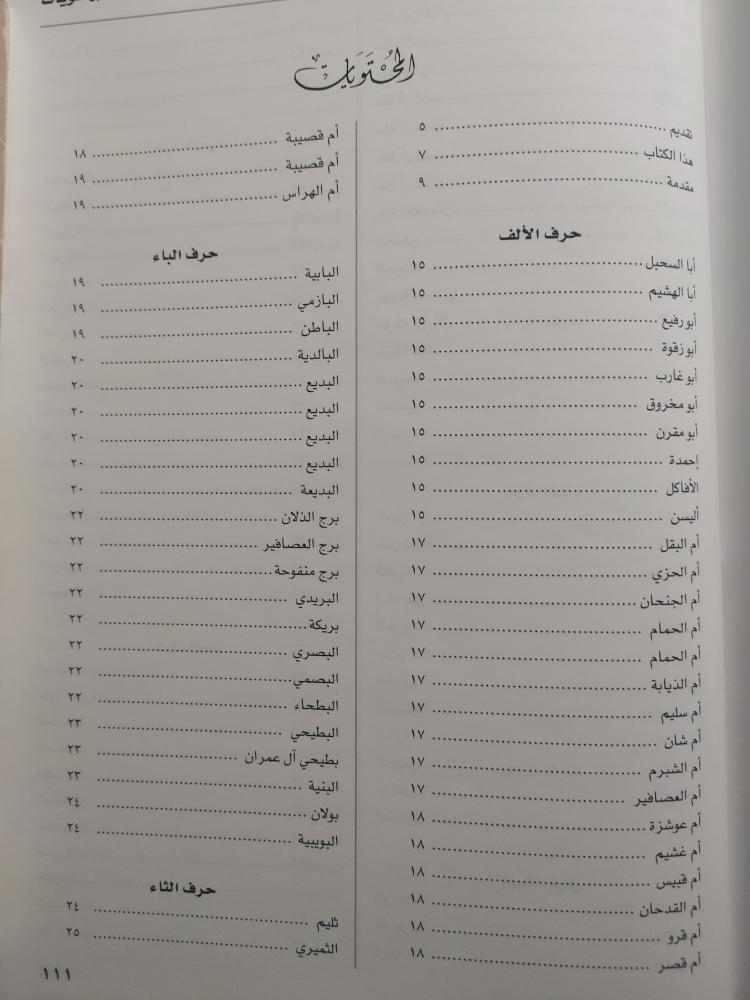 المحتويات
تقديم ..... ٥
هذا الكتاب ..... ٧
مقدمة ..... ٩
حرف الألف
أبا السحبل ..... ١٥
أبا الهشيم ..... ١٥
أبو رفيع ..... ١٥
أبو زقوة ..... ١٥
أبو غارب ..... ١٥
أبو مخروق ..... ١٥
أبو مقرن ..... ١٥
إحمدة ..... ١٥
الأفاكل ..... ١٥
أليسن ..... ١٥
أم البقل ..... ١٧
أم الحزي ..... ١٧
أم الجنحان ..... ١٧
أم الحمام ..... ١٧
أم الحمام ..... ١٧
أم الذيابة ..... ١٧
أم سليم ..... ١٧
أم شان ..... ١٧
أم الشبرم ..... ١٧
أم العصافير ..... ١٧
أم عوشزة ..... ١٨
أم غشيم ..... ١٨
أم قبيس ..... ١٨
أم القدحان ..... ١٨
أم قرو ..... ١٨
أم قصر ..... ١٨
أم قصيبة ..... ١٨
أم قصيبة ..... ١٩
أم الهراس ..... ١٩
حرف الباء
البابية ..... ١٩
البازمي ..... ١٩
الباطن ..... ١٩
البالدية ..... ٢٠
البديع ..... ٢٠
البديع ..... ٢٠
البديع ..... ٢٠
البديع ..... ٢٠
البديعة ..... ٢٠
برج الذلان ..... ٢٢
برج العصافير ..... ٢٢
برج منفوحة ..... ٢٢
البريدي ..... ٢٢
بريكة ..... ٢٢
البصري ..... ٢٢
البصمي ..... ٢٢
البطحاء ..... ٢٢
البطيحي ..... ٢٣
بطيحي آل عمران ..... ٢٣
البنية ..... ٢٣
بولان ..... ٢٤
البويبية ..... ٢٤
حرف الثاء
ثليم ..... ٢٤
الثميري ..... ٢٥
١١١